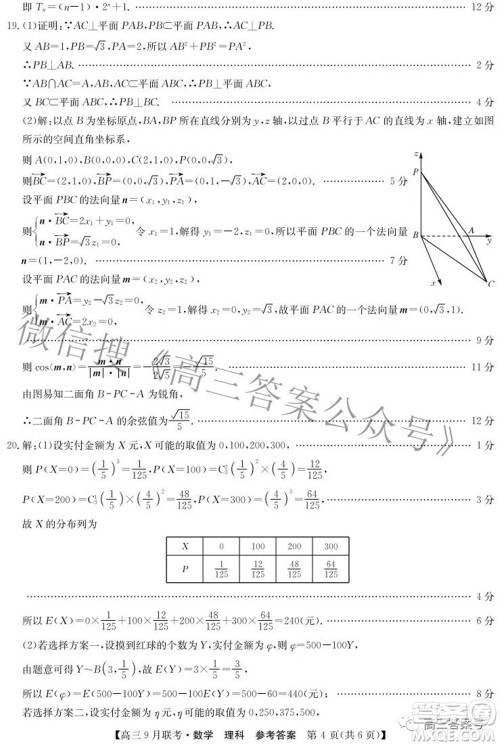 即 Tₙ=(n-1)·2ⁿ+1. 12分
19.(1)证明:∵AC⊥平面 PAB,PB⊂平面 PAB,∴AC⊥PB.
又 AB=1,PB=√3,PA=2,所以 AB²+PB²=PA²,
∴PB⊥AB. 2分
∵AB∩AC=A,AB,AC⊂平面 ABC,∴PB⊥平面 ABC,
又 BC⊂平面 ABC,∴PB⊥BC. 4分
(2)解:以点 B 为坐标原点,BA,BP 所在直线分别为 y,z 轴,以过点 B 平行于 AC 的直线为 x 轴,建立如图
所示的空间直角坐标系,
则 A(0,1,0),B(0,0,0),C(2,1,0),P(0,0,√3),
则BC=(2,1,0),BP=(0,0,√3),PA=(0,1,-√3),AC=(2,0,0). 5分
设平面 PBC 的法向量 n=(x₁,y₁,z₁),
则{n·BC=2x₁+y₁=0, n·BP=√3z₁=0, 令 x₁=1,解得 y₁=-2,z₁=0,所以平面 PBC 的一个法向量
n=(1,-2,0). 7分
设平面 PAC 的法向量 m=(x₂,y₂,z₂),
则{m·PA=y₂-√3z₂=0, m·AC=2x₂=0, 令 z₂=1,解得 x₂=0,y₂=√3,故平面 PAC 的一个法向量 m=(0,√3,1).
9分
则 cos⟨m,n⟩=m·n/|m|·|n|= 11分
由图易知二面角 B-PC-A 为锐角,
∴二面角 B-PC-A 的余弦值为√15/5. 12分
z
P
B
A
y
C
x
20.解:(1)设实付金额为 X 元,X 可能的取值为 0,100,200,300, 1分
则 P(X=0)=(1/5)³=1/125,P(X=100)=C₃¹(4/5)×(1/5)²=12/125,
P(X=200)=C₃²(1/5)×(4/5)²=48/125,P(X=300)=(4/5)³=64/125, 3分
故 X 的分布列为
X 0 100 200 300
P 1/125 12/125 48/125 64/125
4分
所以 E(X)=0×1/125+100×12/125+200×48/125+300×64/125=240(元). 6分
(2)若选择方案一,设摸到红球的个数为 Y,实付金额为 φ,则 φ=500-100Y,
由题意可得 Y~B(3,1/5),故 E(Y)=3×1/5=3/5,
所以 E(φ)=E(500-100Y)=500-100E(Y)=500-60=440(元); 8分
若选择方案二,设实付金额为 η,η 可能的取值为 0,250,375,500,
【高三9月联考·数学 理科 参考答案 第4页(共6页)】
微信搜《高三答案公众号》
高三答案号